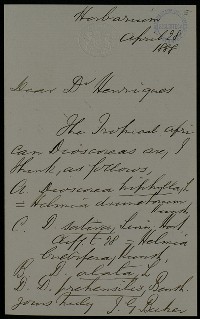 Herbarium
April 28
188
Dear Dr Henriques
The Tropical Afri
can Dioscoreas are, I
think, as follows,
A Dioscorea triphylla, L
= Helmia dumetorum,
Kunth,
C. D. sativa, Linn, Hort
Cliff t 28 = Helmia
bulbifera, Kunth,
B. D. alata, L
D. D. prehensilis, Benth.
Yours truly J. G. Baker